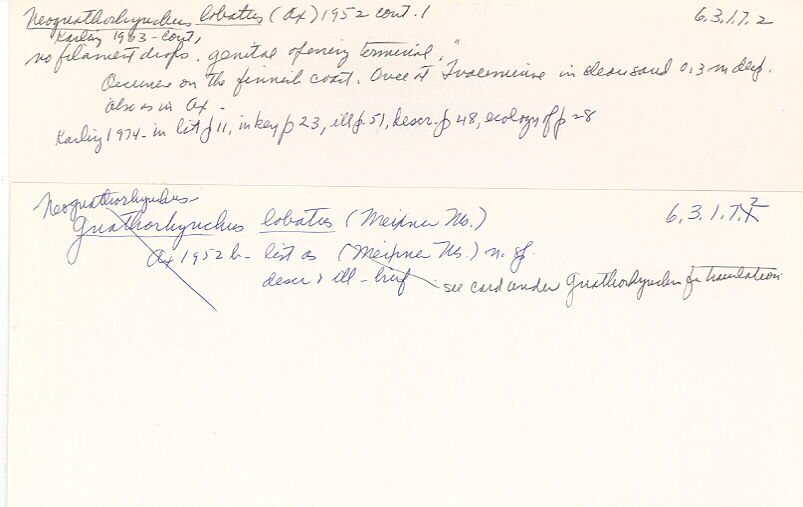 Neognathorhynchus lobatus (Ax) 1952 cont. 1 6.3.1.7.2
Karling 1963 - cont,
no filament drops. genital opening terminal."
Occurence on the finnish coast. Once at Tvaerminne in clean sand 0.3 m deep.
also as in Ax -
Karling 1974 - in list p 11, in key p 23, ill p 51, descr. p 48, ecology of p 28
Neognathorhynchus
Gnathorhynchus lobatus (Meixner Ms.) 6.3.1.7.2
Ax 1952 b - list as (Meixner Ms.) n. sp.
descr & ill - brief - see card under Gnathorhynchus for translation